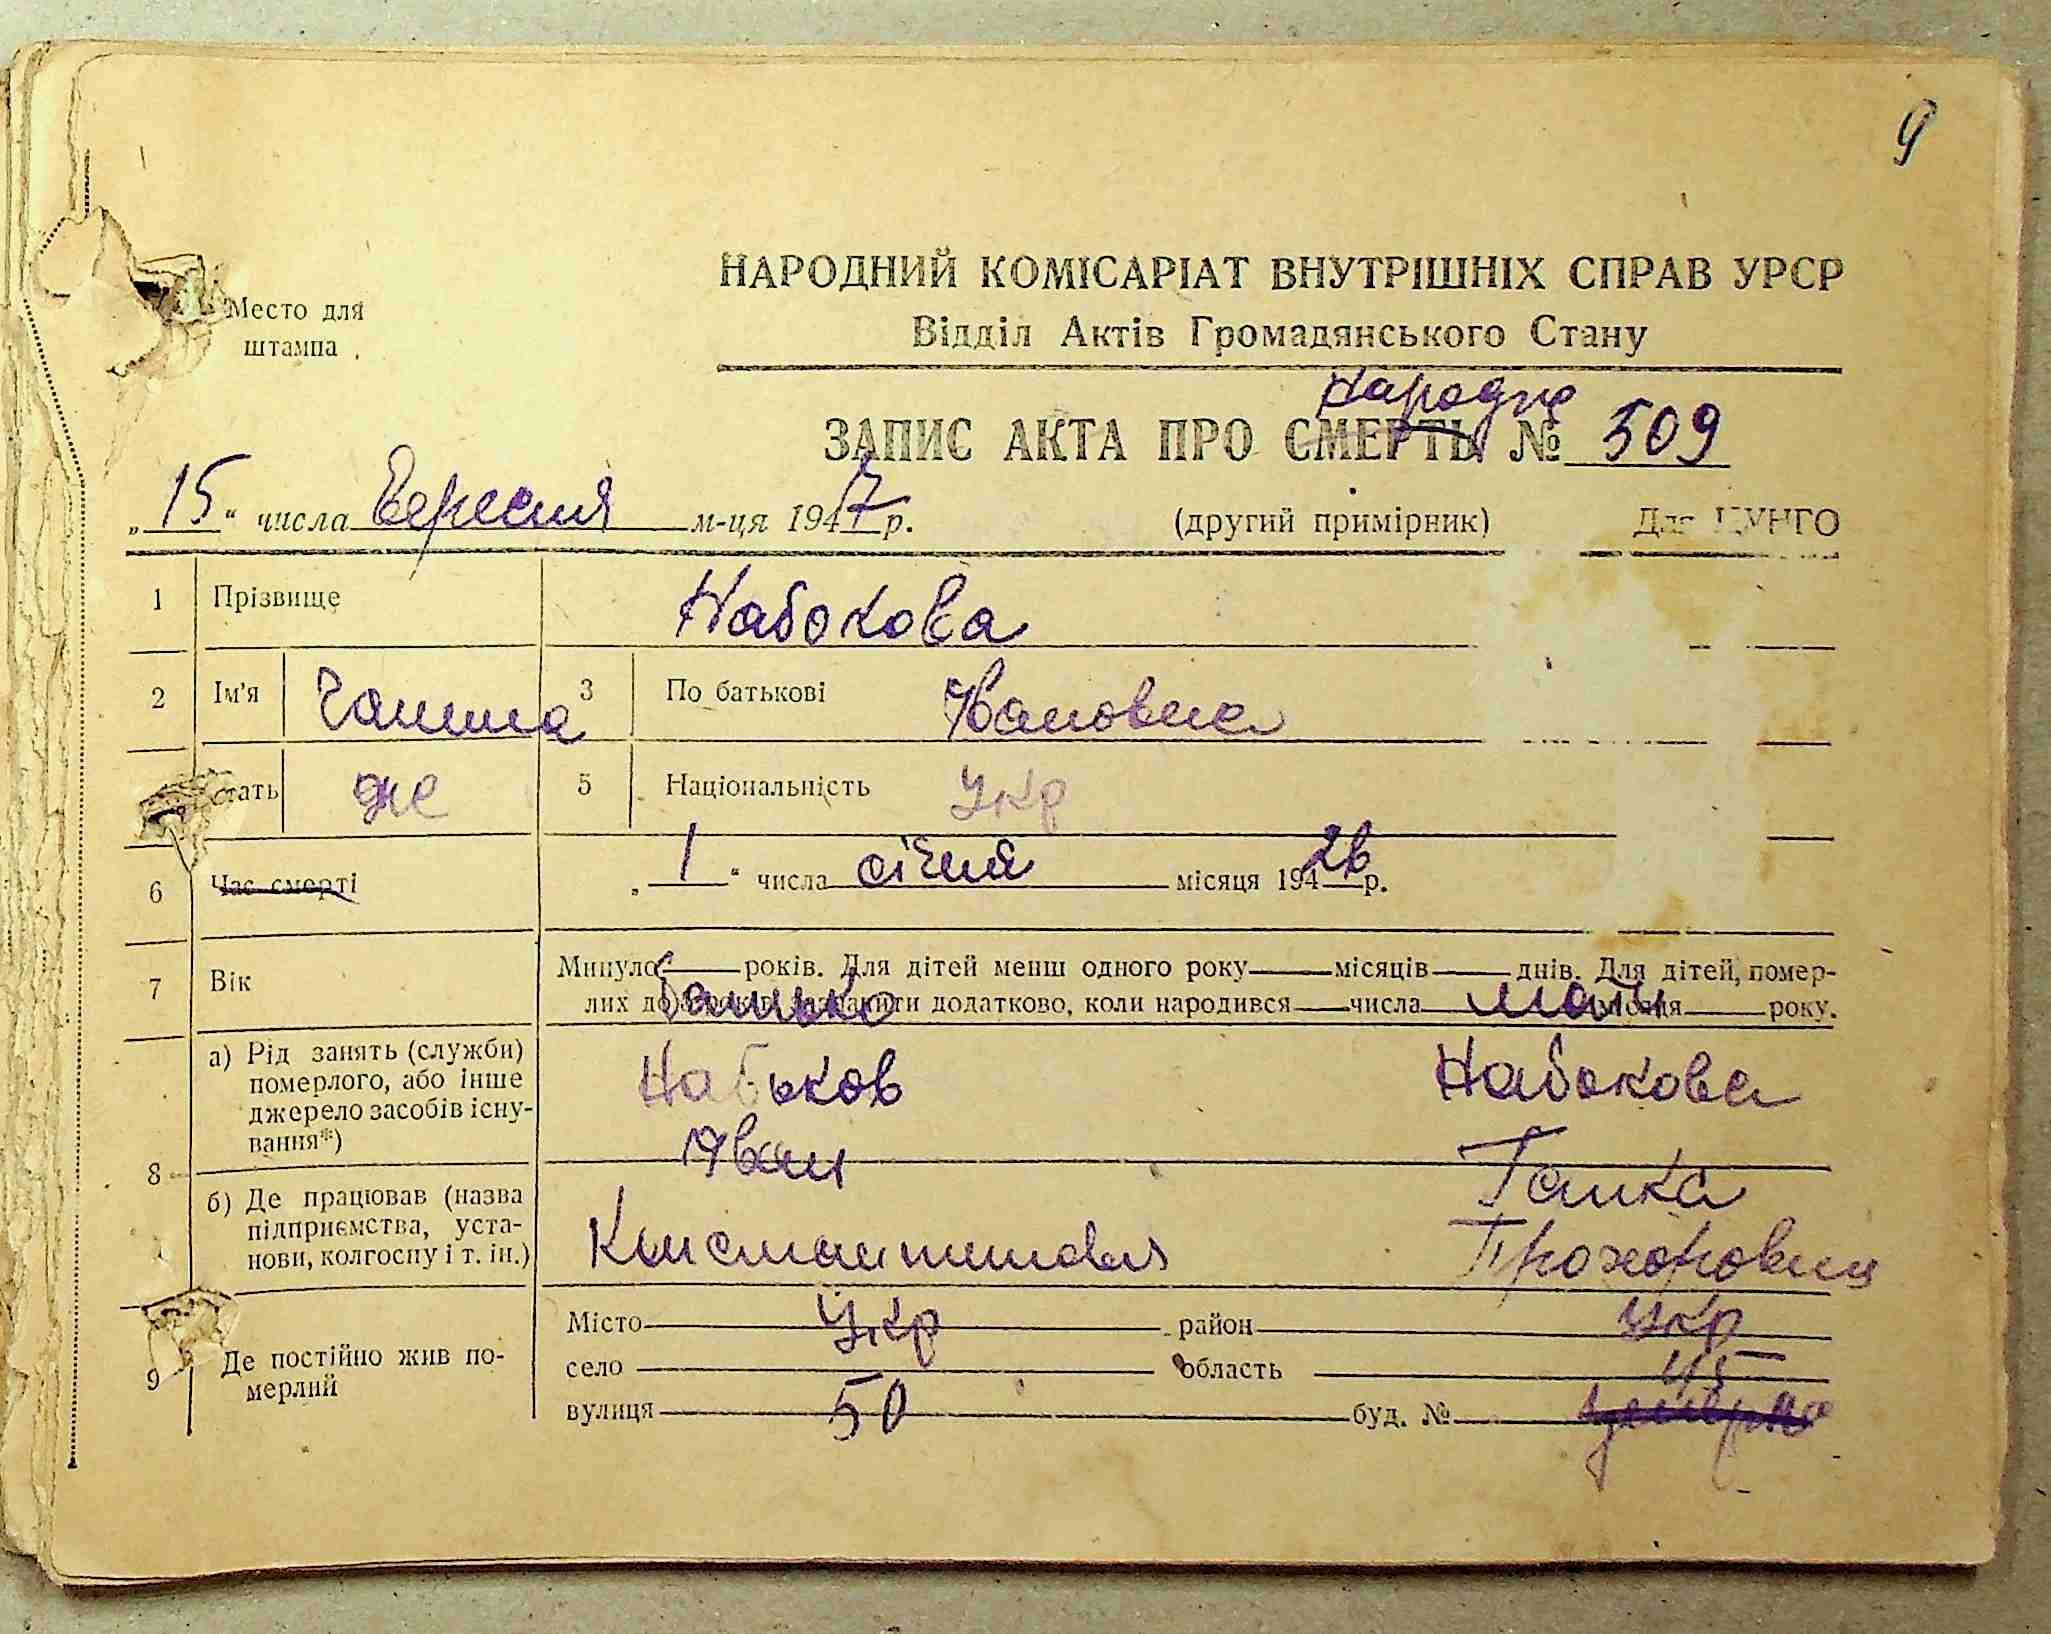 9
Место для
штампа
НАРОДНИЙ КОМІСАРІАТ ВНУТРІШНІХ СПРАВ УРСР
Відділ Актів Громадянського Стану
ЗАПИС АКТА ПРО СМЕРТЬ № 509
„15“ числа Вересня м-ця 1947 р.
(другий примірник) Для ЦУНГО
1 Прізвище Набокова
2 Ім'я Ганна 3 По батькові Ивановна
стать Же 5 Національність Укр
6 Час смерті „1“ числа січня місяця 194 26 р.
7 Вік Минуло років. Для дітей менш одного року місяців днів. Для дітей, помер-
лих до зазначити додатково, коли народився числа місяця року.
Батько Мати
8 а) Рід занять (служби)
померлого, або інше
джерело засобів існу-
вання*)
Набоков Набокова
Иван Ганка
б) Де працював (назва
підприємства, уста-
нови, колгоспу і т. ін.)
Константинович Прохоровна
9 Де постійно жив по-
мерлий
Місто Укр район Укр
село область 45
вулиця 50 буд. №